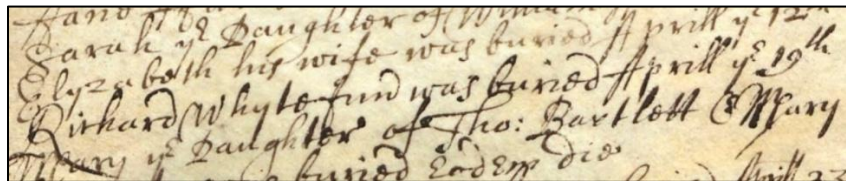 Sarah yᵉ Daughter of William
Elyzabeth his wife was buried Aprill yᵉ 12th
Richard Whytefind was buried Aprill yᵉ 19th
Mary yᵉ Daughter of Tho: Bartlett & Mary
buried Eodem die